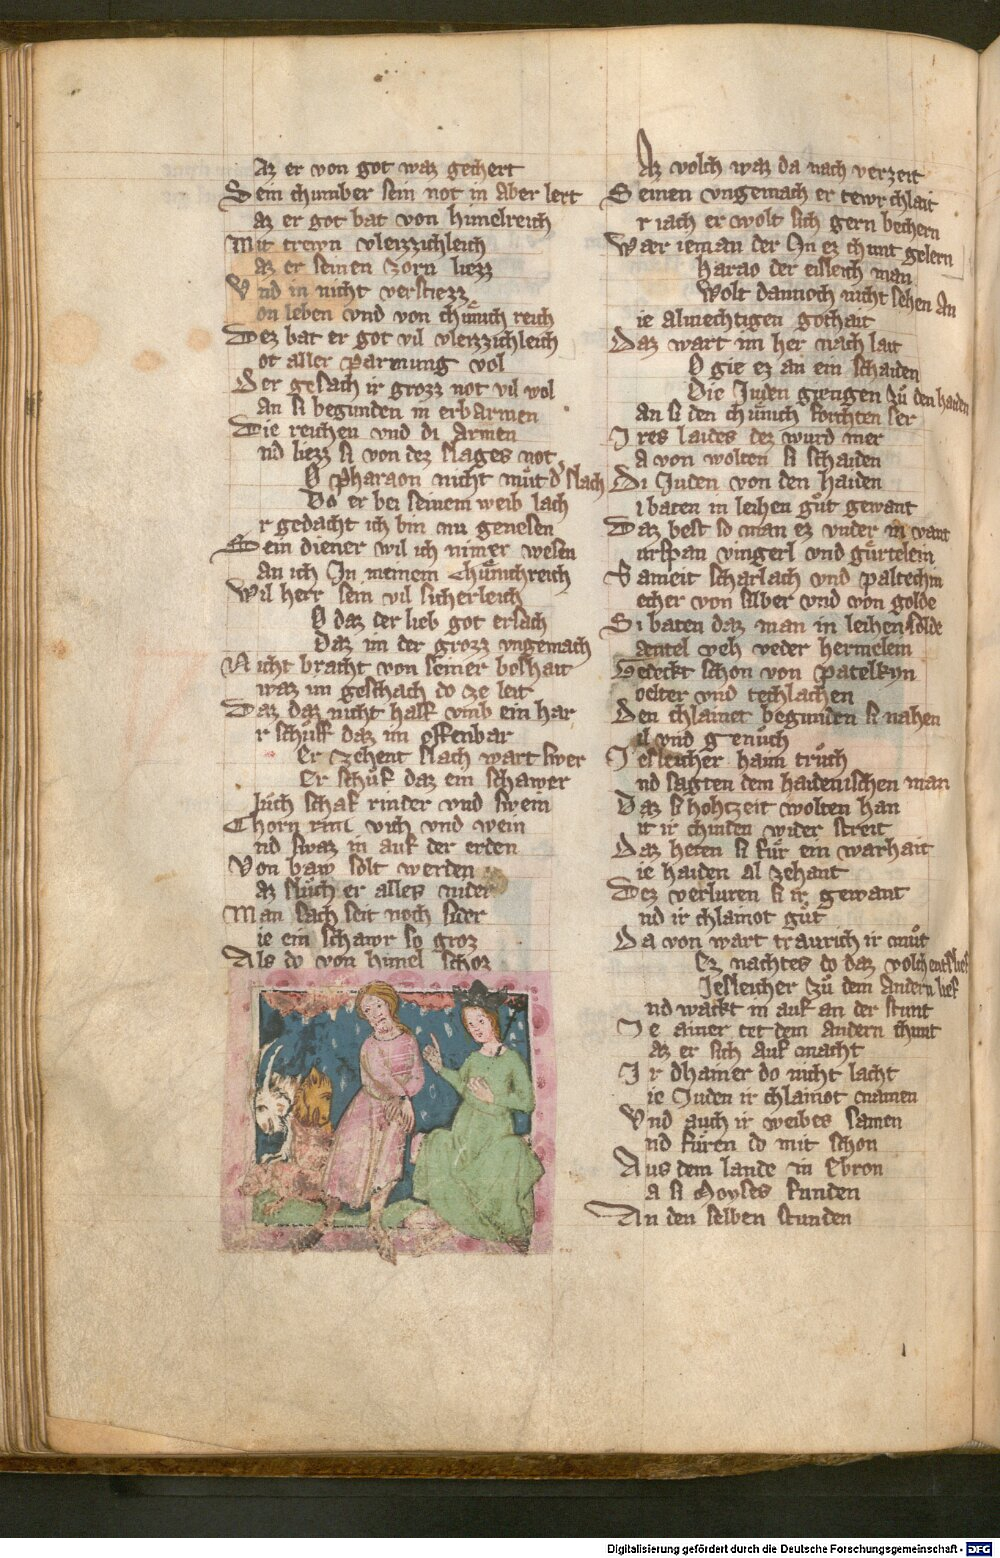 Az er von got waz gechert
Sein chumber sein not in aber lert
az er got bat von himelreich
Mit trewn vleizzichleich
az er seinen zorn liezz
Vnd in nicht verstiezz
on leben vnd von chunich reich
Dez bat er got vil vleizzichleich
ot aller parmung vol
Der gesach ir grozz not vil wol
an si begunden in erbarmen
Die reichen vnd di armen
nd liezz si von dez slages not
O pharaon nicht muͤt d slach
Do er bei seinem weib lach
r gedacht ich bin nu genesen
Sein diener wil ich nimer wesen
an ich In meinem chuͤnichreich
Wil herr sein vil sicherleich
O daz der lieb got ersach
Daz im der grozz vngemach
Nicht bracht von seiner boshait
waz im geschach do ze leit
Daz daz nicht half vmb ein har
r schuͤff daz im offenbar
Er zehent slach wart swer
Er schuͤf daz ein schawer
luͤch schaf rinder vnd swein
Chorn rint vich vnd wein
nd swaz in auf der erden
Von baw solt werden
az sluͤch er alles nider
Man sach seit noch sider
ie ein schawr so groz
Als do von himel schoz
Az volch waz da nach verzeit
Seinen vngemach er tewr chlait
r iach er wolt sich gern bechern
War ieman der In ez chunt gelern
harao der eisleich man
Wolt dannoch nicht sehen an
ie almechtigen gothait
Daz wart im her nach lait
O gie ez an ein schaiden
Die Juden giengen zuͤ den haiden
an si den chuͤnich forchten ser
Ires laides dez wurd mer
a von wolten si schaiden
Di Juden von den haiden
i baten in leihen guͤt gewant
Daz best so man ez vnder in vant
urspan vingerl vnd guͤrtelein
Sameit scharlach vnd paltechin
echer von silber vnd von golde
Si baten daz man in leihen solde
antel veh veder hermelein
Gedeckt schon von patelkyn
oelter vnd techlachen
Den chlainet begunden si nahen
il vnd genuͤch
Jesleicher haim truͤch
nd sagten dem haidenischen man
Daz si hohtzeit wolten han
it ir chinden wider streit
Daz heten si fuͤr ein warhait
ie haiden al zehant
Dez verluren si ir gewant
nd ir chlainot guͤt
Da von wart traurich ir muͤt
Ez nachtes do daz volch entslief
Jesleicher zuͤ dem andern lief
nd wackt in auf an der stunt
Je ainer tet dem andern chunt
az er sich auf macht
Ir dhainer do nicht lacht
ie Juden ir chlainot namen
Vnd auch ir weibes samen
nd fuͤren do mit schon
Aus dem lande in Ebron
a si Moyses funden
An den selben stunden
Digitalisierung gefördert durch die Deutsche Forschungsgemeinschaft - DFG